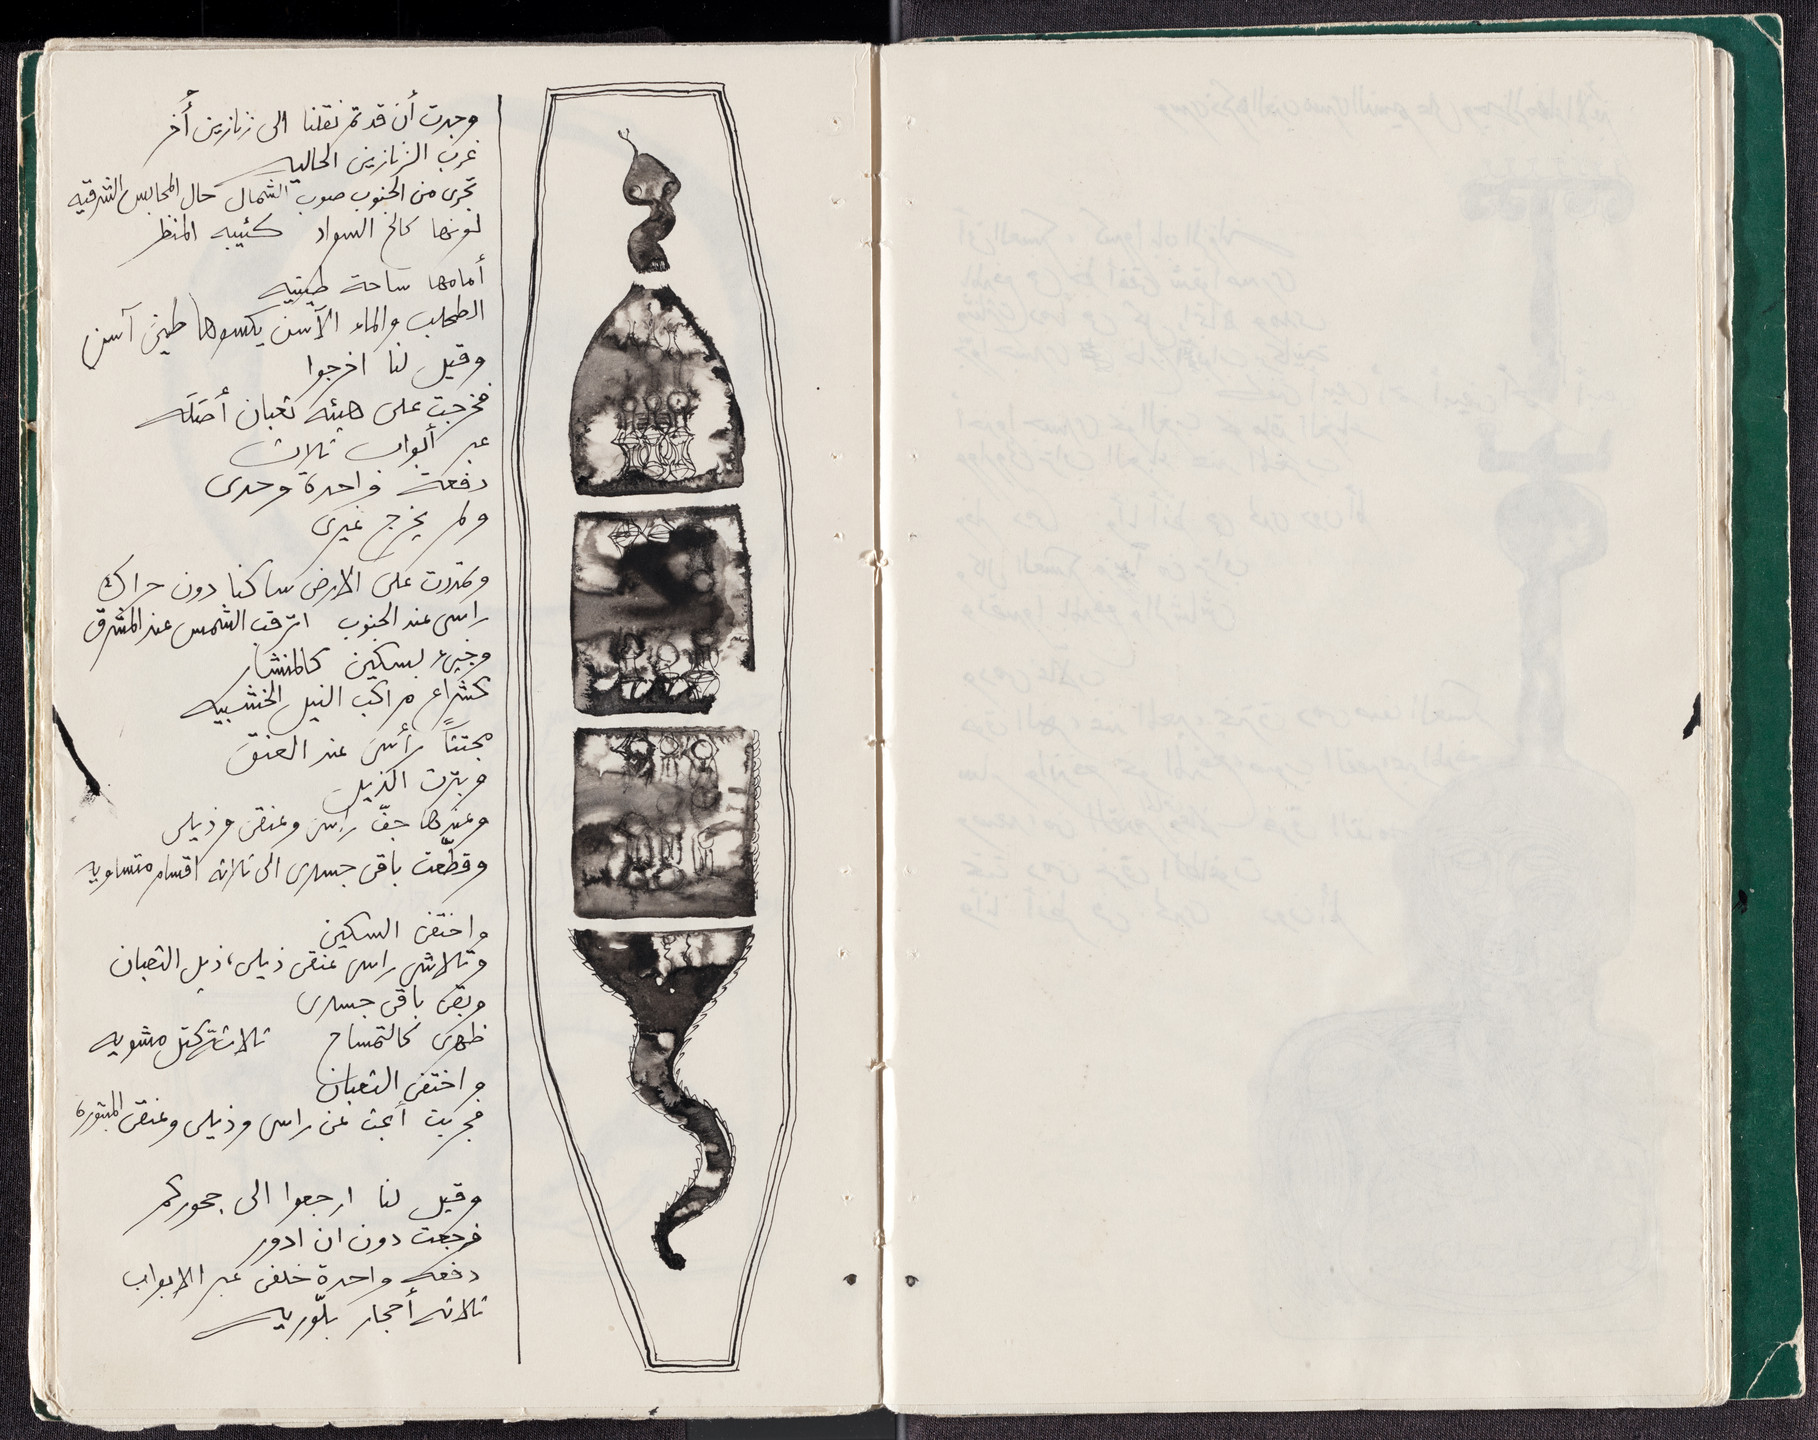 وجدت أن قد تم نقلنا الى زنازين أُخر
غرب الزنازين الحاليه
تجرى من الجنوب صوب الشمال حال المحابس الشرقيه
لونها كالح السواد كئيبه المنظر
أمامها ساحة طينيه
الطحلب والماء الآسن يكسوها طين آسن
وقيل لنا اخرجوا
فخرجت على هيئة ثعبان أصَلَه
عبر أبواب ثلاث
دفعة واحدة وحدى
ولم يخرج غيرى
وتمددت على الارض ساكنا دون حراك
راسى عند الجنوب اترقب الشمس عند المشرق
وجيء بسكين كالمنشار
كشراع مراكب النيل الخشبيه
مجتثاً رأسى عند العنق
وبترت الذيل
وعندها جفّ راسى وعنقى وذيلى
وقطّعت باقى جسدى الى ثلاثه اقسام متساويه
واختفى السكين
وتلاشى راسى عنقى ذيلى، ذيل الثعبان
وبقى باقى جسدى
ظهرى كالتمساح ثلاثة كتل مشويه
واختفى الثعبان
فجريت أبحث عن راسى وذيلى وعنقى المبتورة
وقيل لنا ارجعوا الى جحوركم
فرجعت دون ان ادور
دفعه واحدة خلفى عبر الابواب
ثلاثه أحجار بلّوريه